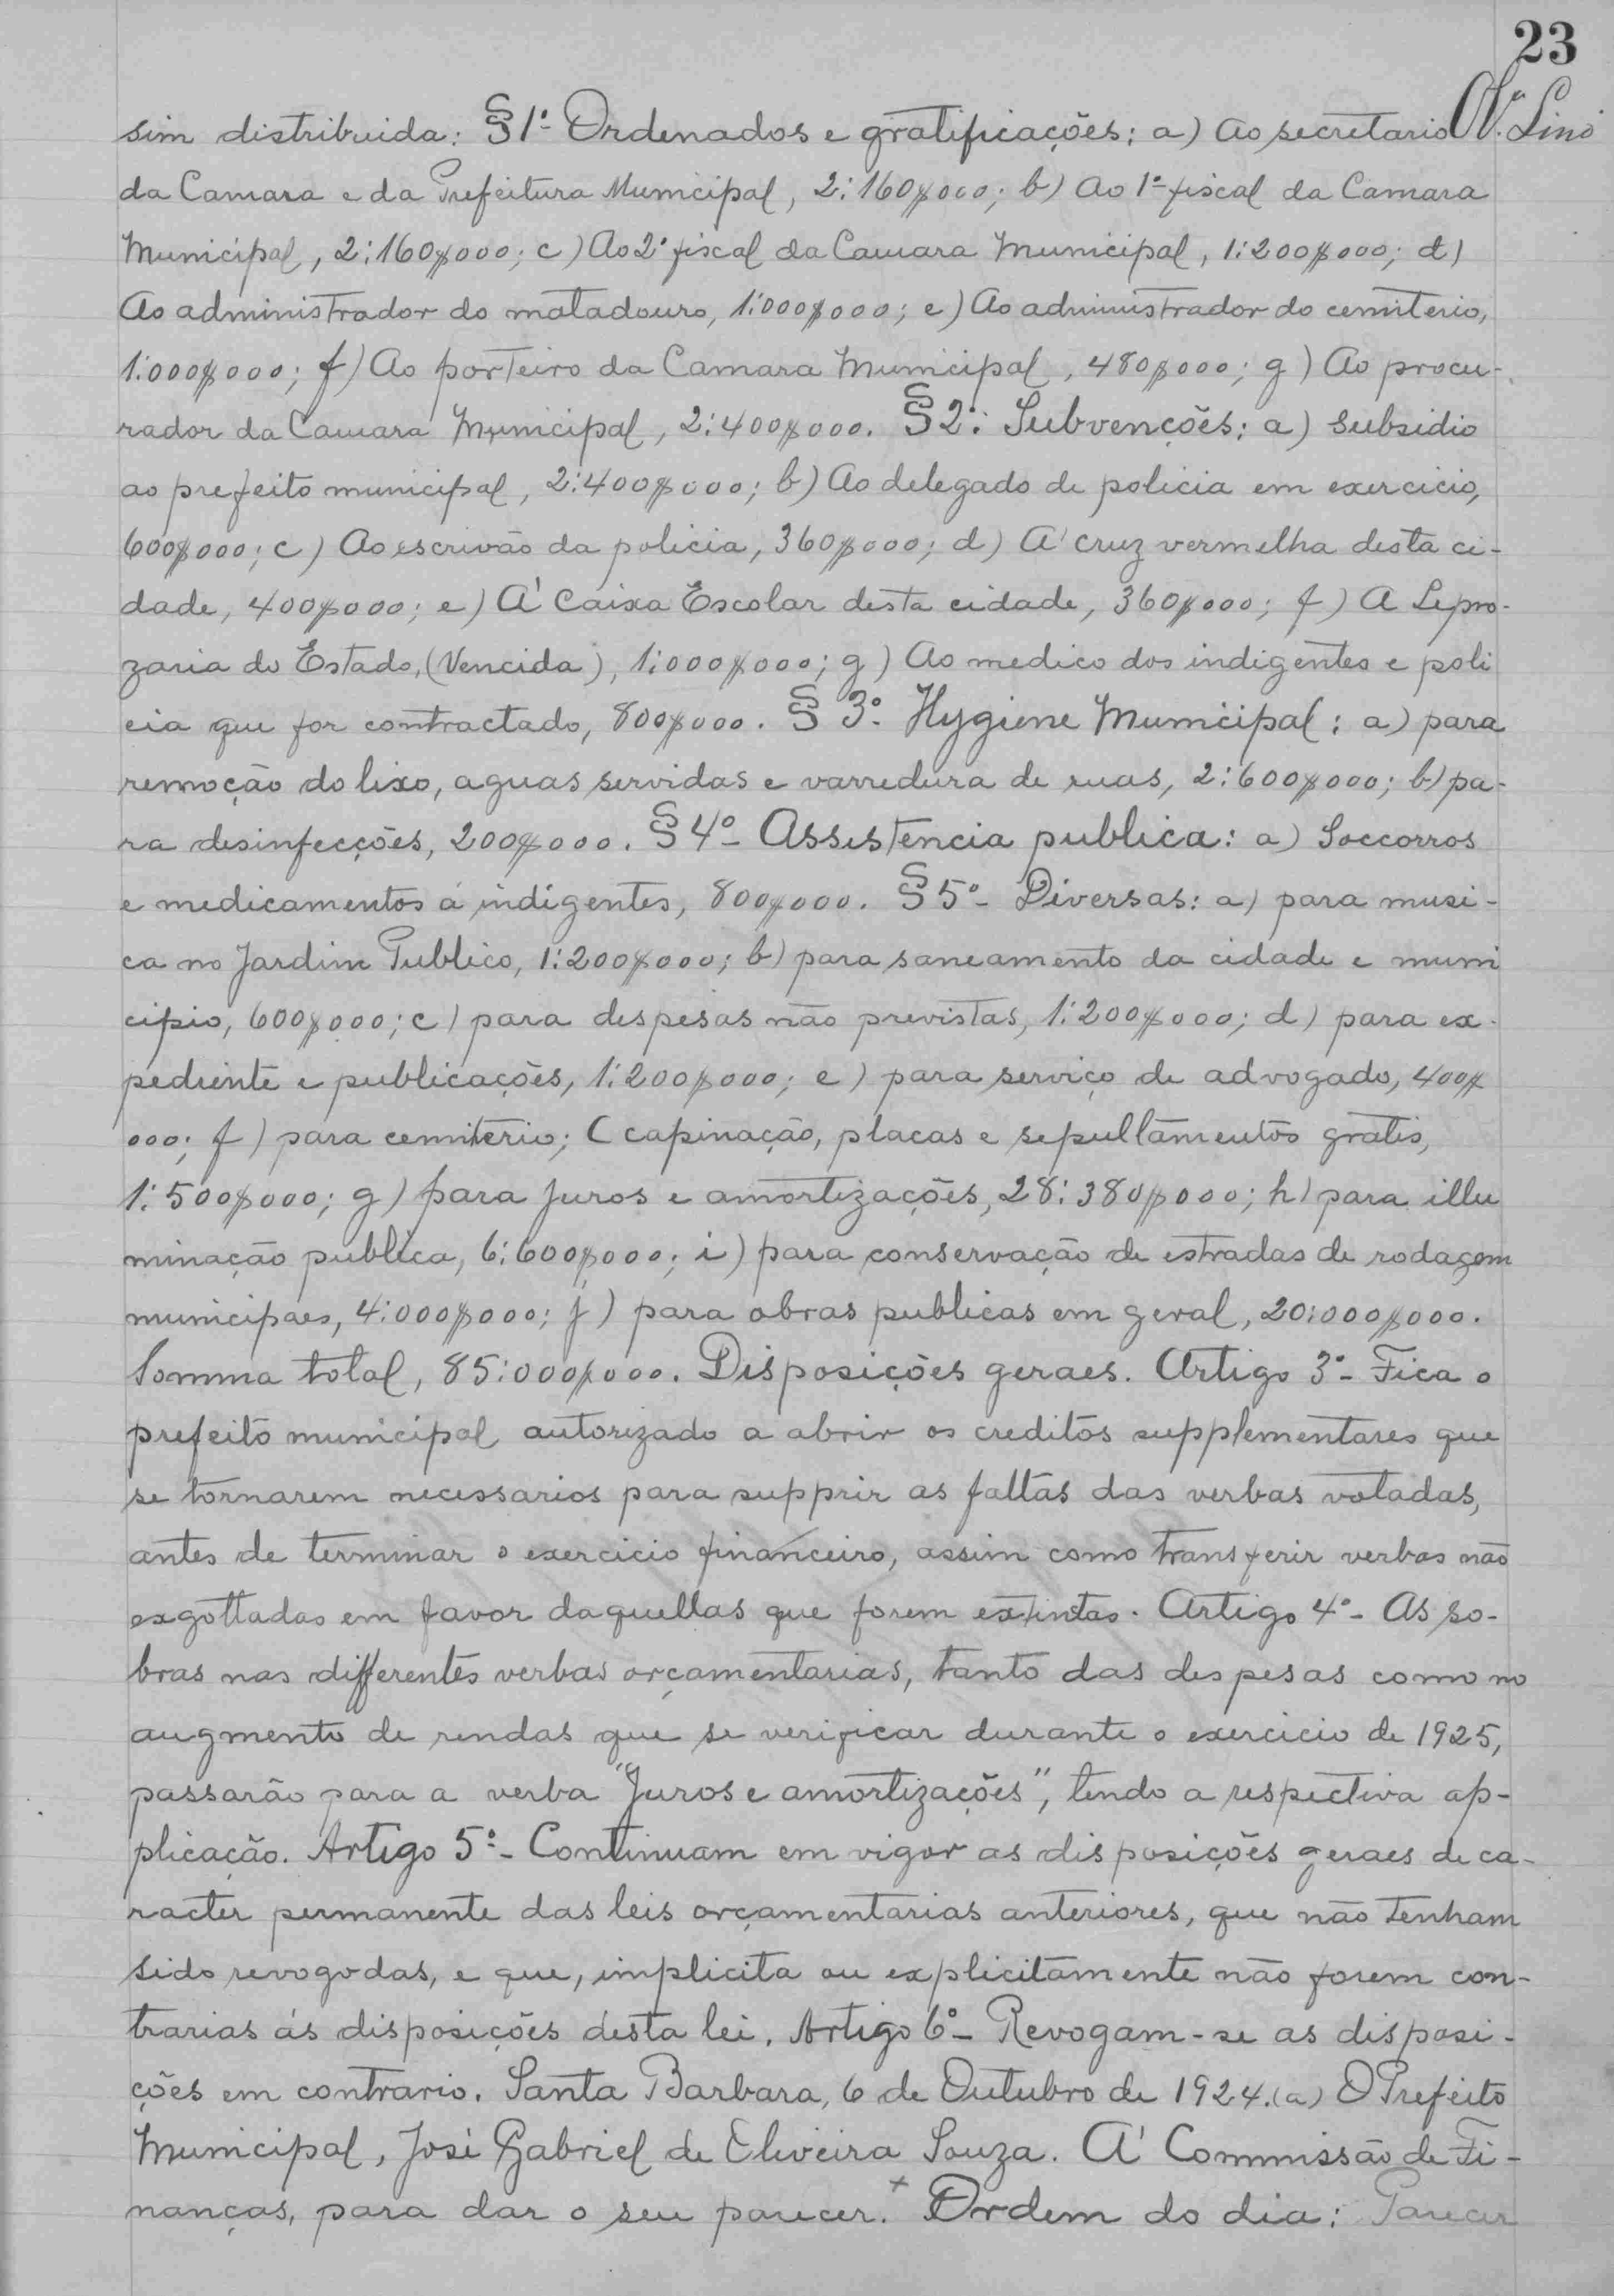 23
sim distribuida: § 1º Ordenados e gratificações: a) Ao secretario
Lino
da Camara e da Prefeitura Municipal, 2:160$000; b) Ao 1º fiscal da Camara
Municipal, 2:160$000; c) Ao 2º fiscal da Camara Municipal, 1:200$000; d)
Ao administrador do matadouro, 1:000$000; e) Ao administrador do cemiterio,
1:000$000; f) Ao porteiro da Camara Municipal, 480$000; g) Ao procu-
rador da Camara Municipal, 2:400$000. § 2º: Subvenções: a) Subsidio
ao prefeito municipal, 2:400$000; b) Ao delegado de policia em exercicio,
600$000; c) Ao escrivão da policia, 360$000; d) A' cruz vermelha desta ci-
dade, 400$000; e) A' Caixa Escolar desta cidade, 360$000; f) A Lepro-
zaria do Estado, (Vencida), 1:000$000; g) Ao medico dos indigentes e poli
cia que for contractado, 800$000. § 3º. Hygiene Municipal: a) para
remoção do lixo, aguas servidas e varredura de ruas, 2:600$000; b) pa-
ra desinfecções, 200$000. § 4º - Assistencia publica: a) Soccorros
e medicamentos á indigentes, 800$000. § 5º - Diversas: a) para musi-
ca no Jardim Publico, 1:200$000; b) para saneamento da cidade e muni
cipio, 600$000; c) para despesas não previstas, 1:200$000; d) para ex-
pediente e publicações, 1:200$000; e) para serviço de advogado, 400$
000; f) para cemiterio; (capinação, placas e sepultamentos gratis,
1:500$000; g) para juros e amortizações, 28:380$000; h) para illu
minação publica, 6:600$000; i) para conservação de estradas de rodagem
municipaes, 4:000$000; j) para obras publicas em geral, 20:000$000.
Somma total, 85:000$000. Disposições geraes. Artigo 3º - Fica o
prefeito municipal autorizado a abrir os creditos supplementares que
se tornarem necessarios para supprir as faltas das verbas votadas,
antes de terminar o exercicio financeiro, assim como transferir verbas não
exgottadas em favor daquellas que forem extintas. Artigo 4º - As so-
bras nas differentes verbas orçamentarias, tanto das despesas como no
augmento de rendas que se verificar durante o exercicio de 1925,
passarão para a verba "Juros e amortizações", tendo a respectiva ap-
plicação. Artigo 5º - Continuam em vigor as disposições geraes de ca-
racter permanente das leis orçamentarias anteriores, que não tenham
sido revogodas, e que, implicita ou explicitamente não forem con-
trarias ás disposições desta lei. Artigo 6º - Revogam-se as disposi-
ções em contrario. Santa Barbara, 6 de Outubro de 1924. (a) O Prefeito
Municipal, José Gabriel de Oliveira Souza. A' Commissão de Fi-
nanças, para dar o seu parecer. + Ordem do dia: Parecer